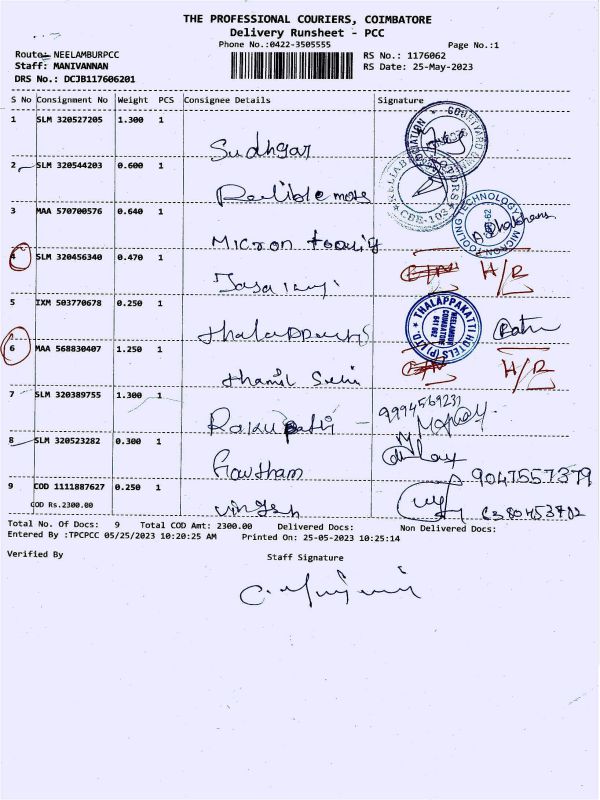 THE PROFESSIONAL COURIERS, COIMBATORE
Delivery Runsheet - PCC
Phone No.:0422-3505555 Page No.:1
Route: NEELAMBURPCC RS No.: 1176062
Staff: MANIVANNAN RS Date: 25-May-2023
DRS No.: DCJB117606201
S No Consignment No Weight PCS Consignee Details Signature
1 SLM 320527205 1.300 1
Sudhgar
2 SLM 320544203 0.600 1
3 MAA 570700576 0.640 1
MICRON TOOLING TECHNOLOGY
Micron tooling
4 SLM 320456340 0.470 1 H/R
5 IXM 503770678 0.250 1
THALAPPAKATTI HOTELS (P) LTD.
NEELAMBUR
COIMBATORE
641 062
6 MAA 568830407 1.250 1 H/R
Thamil Selvi
7 SLM 320389755 1.300 1 9994569231
8 SLM 320523282 0.300 1
Gowtham
9 COD 1111887627 0.250 1 9047557379
COD Rs.2300.00
Total No. Of Docs: 9 Total COD Amt: 2300.00 Delivered Docs: Non Delivered Docs:
Entered By :TPCPCC 05/25/2023 10:20:25 AM Printed On: 25-05-2023 10:25:14
Verified By Staff Signature